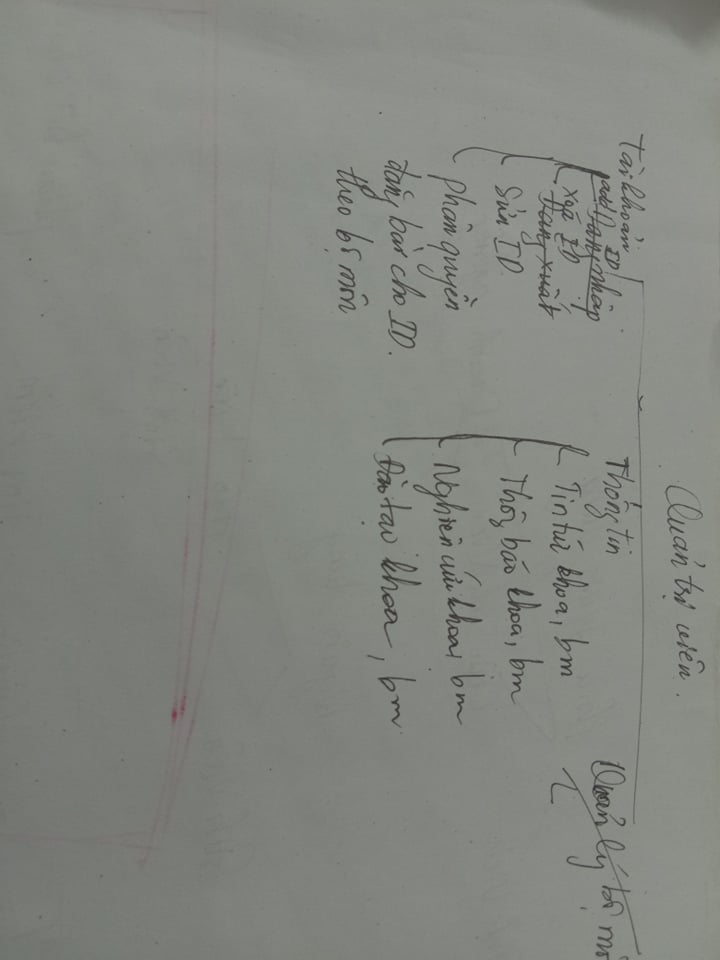 Quản trị viên.
Tài khoản
Đăng nhập
add ID
Đăng xuất
xóa ID
Sửa ID
phân quyền
đăng bài cho ID.
theo bộ môn
Thông tin
Tin tức khoa, bm
Thông báo khoa, bm
Nghiên cứu khoa, bm
Đào tạo khoa, bm
Quản lý bộ